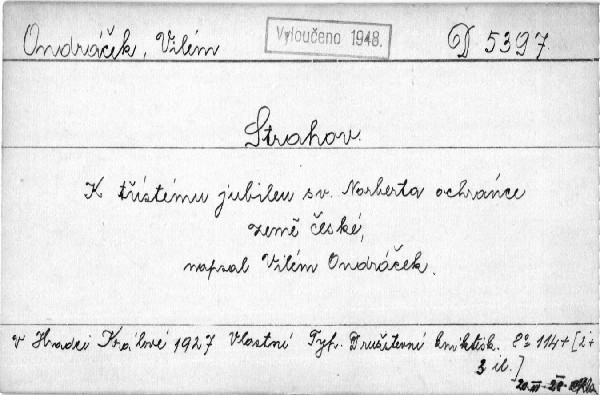 Ondráček, Vilém Vyloučeno 1948. D 5397.
Strahov.
K třístému jubileu sv. Norberta ochránce
země české,
napsal Vilém Ondráček.
v Hradci Králové 1927 Vlastní Typ. Družstevní knihtisk. 8º 114+[2+
3 il.]